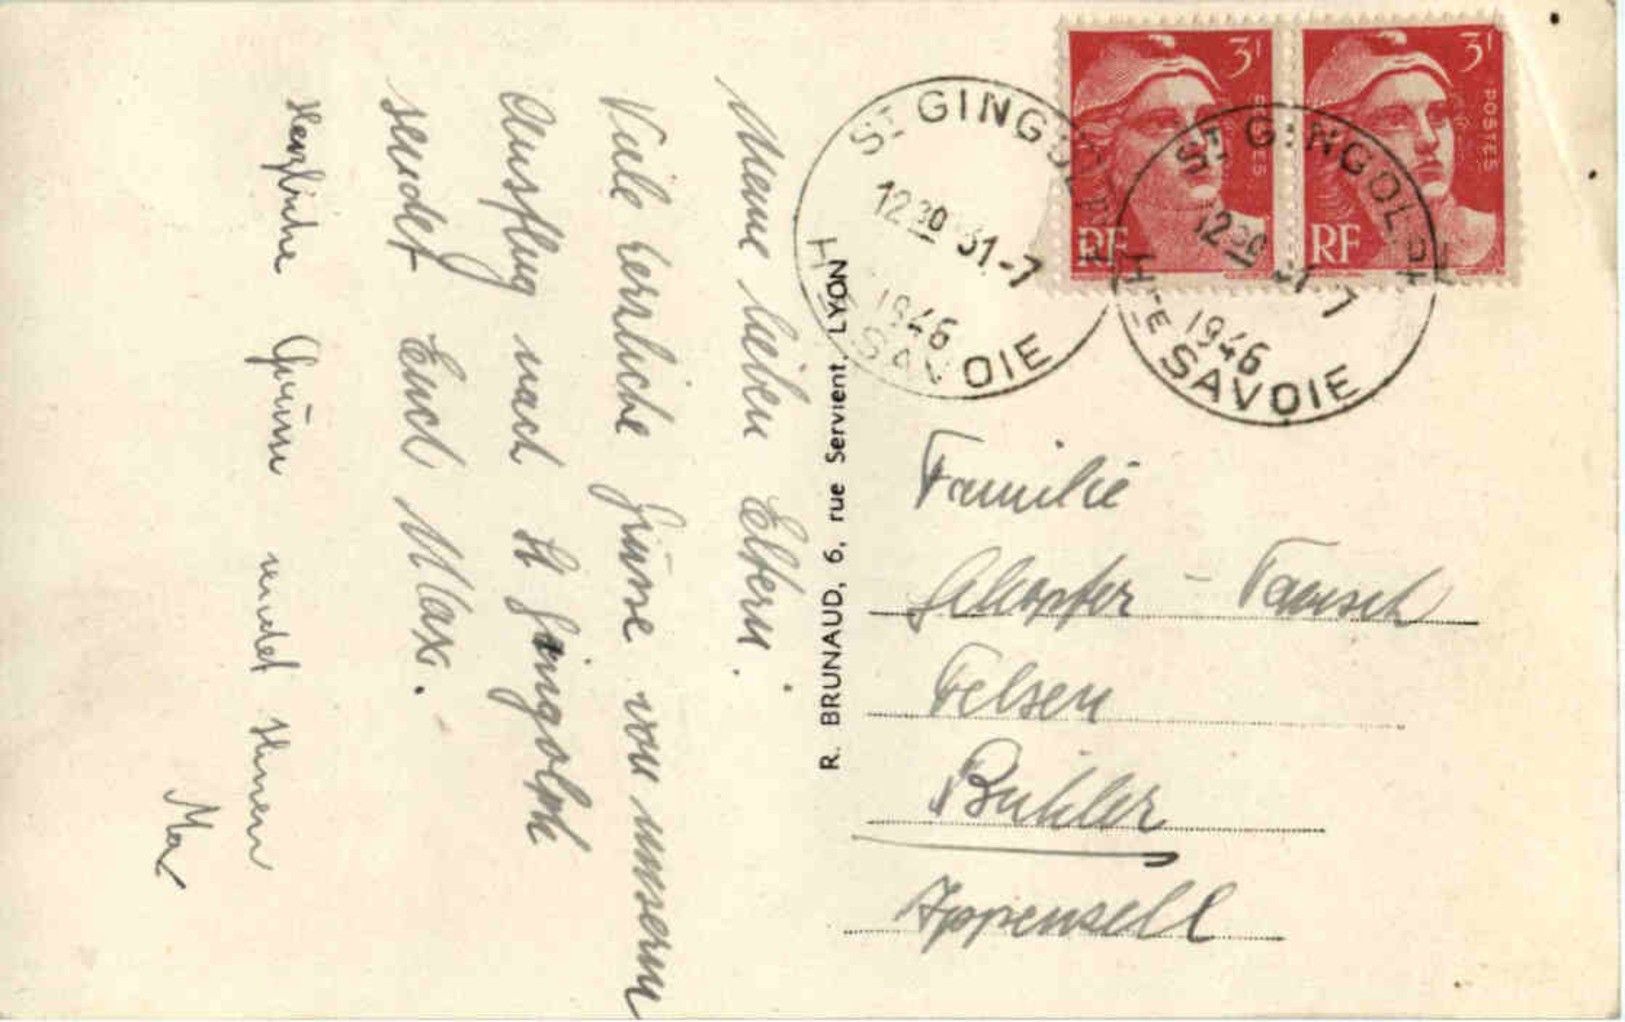 Meine lieben Eltern.
Viele herzliche Grüsse von unserem
Ausflug nach St Gingolph
sendet Euch Max.
Herzliche Grüsse sendet
R. BRUNAUD, 6, rue Servient, LYON
3F
POSTES
RF
3F
POSTES
RF
St GINGOLPH
12 30 31-7
1946
Hte SAVOIE
St GINGOLPH
12 30 31-7
1946
Hte SAVOIE
Familie
Felsen
Bühler
Appenzell